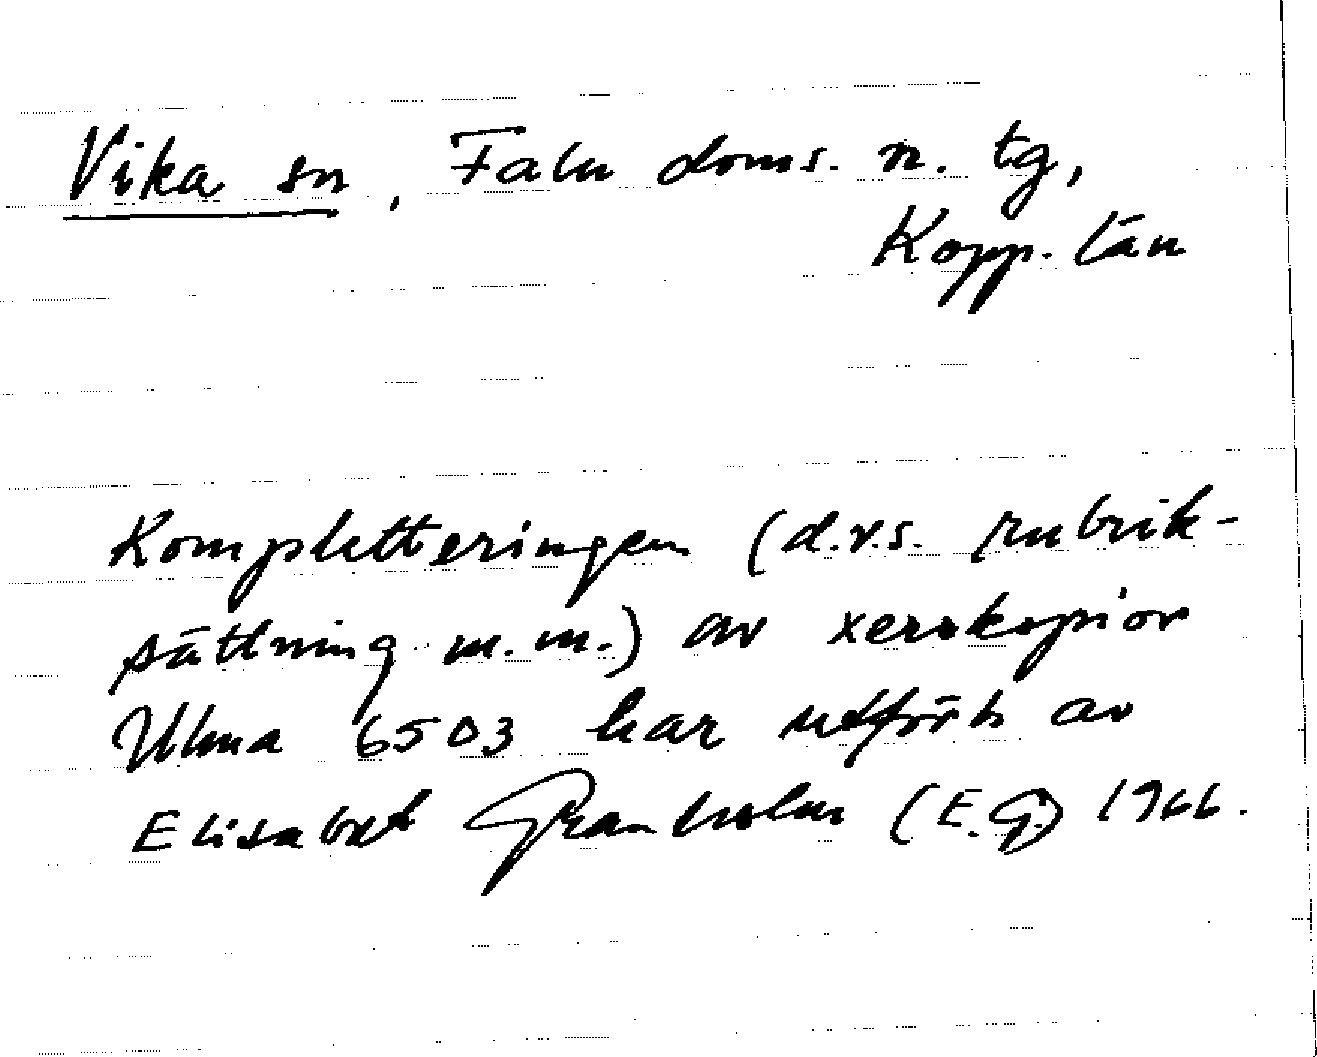 Vika sn, Falu doms. n. tg,
Kopp. län
Kompletteringen (d.v.s. rubrik-
sättning m.m.) av xerokopior
Ulma 6503 har utförts av
Elisabet Granholm (E.G) 1966.